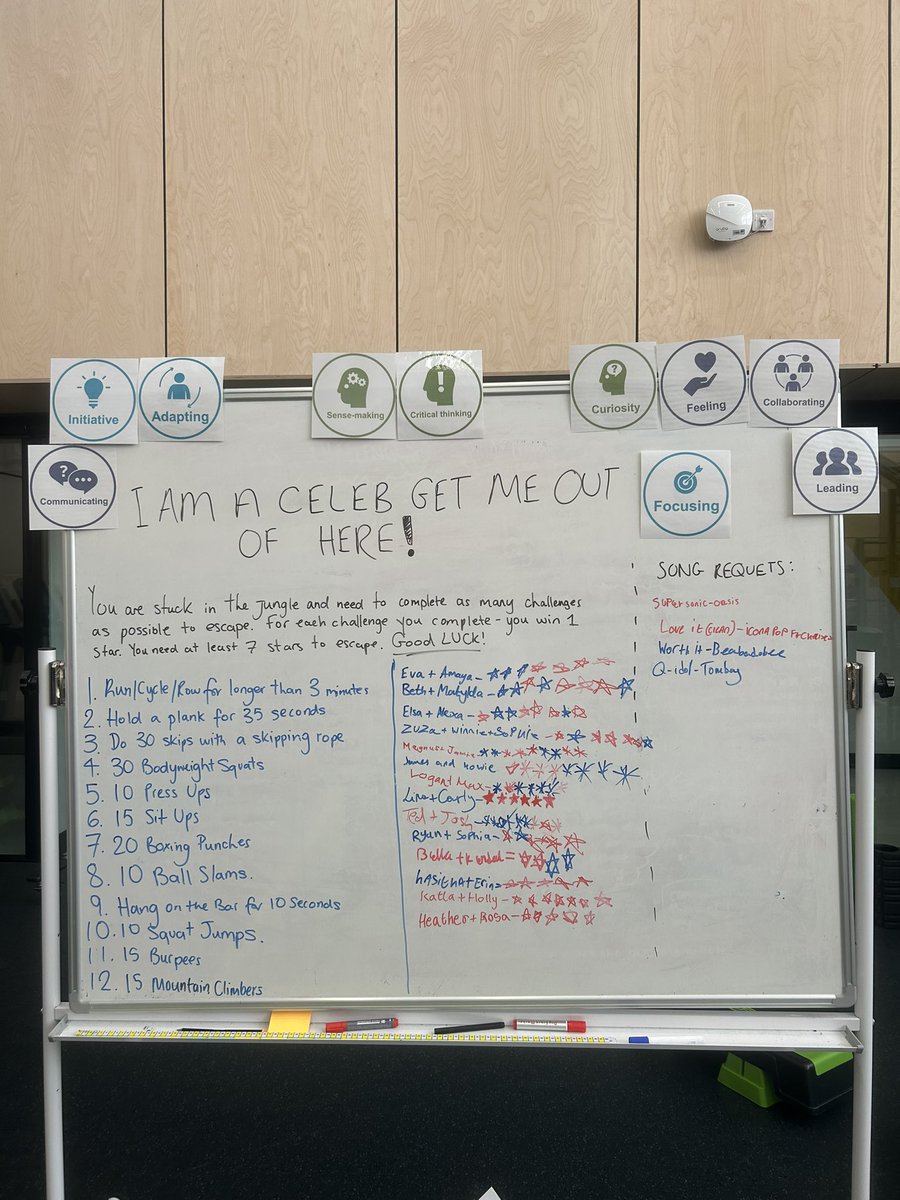 Initiative
Adapting
Sense-making
Critical thinking
Curiosity
Feeling
Collaborating
Communicating
Focusing
Leading
I AM A CELEB GET ME OUT
OF HERE!
You are stuck in the jungle and need to complete as many challenges
as possible to escape. For each challenge you complete - you win 1
star. You need at least 7 stars to escape. Good LUCK!
1. Run/Cycle/Row for longer than 3 minutes
2. Hold a plank for 35 seconds
3. Do 30 skips with a skipping rope
4. 30 Bodyweight Squats
5. 10 Press Ups
6. 15 Sit Ups
7. 20 Boxing Punches
8. 10 Ball Slams.
9. Hang on the Bar for 10 Seconds
10. 10 Squat Jumps.
11. 15 Burpees
12. 15 Mountain Climbers
Eva + Amaya -
Beth +
Elsa + Alexa -
Zuza + Winnie + Sophie -
Magnus +
James and howie
Logan + Max -
Lina + Carly -
Ted + Josh -
Ryan + Sophia -
Bella + =
Katla + Holly -
Heather + Rosa -
SONG REQUETS:
Supersonic - oasis
Love it - icona Pop Ft
Worth it - Beabadobee
Q-idol - Tomboy